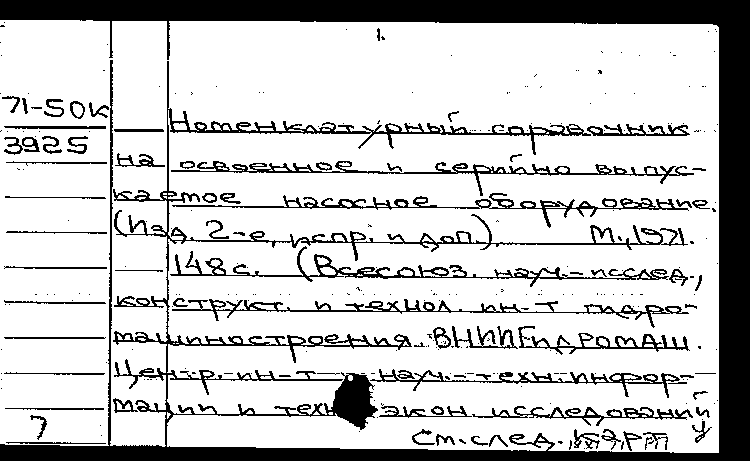 1.
71-50к
3925
Номенклатурный справочник
на освоенное и серийно выпус-
каемое насосное оборудование.
(Изд. 2-е, испр. и доп.). М., 1971.
148 с. (Всесоюз. науч.-исслед.,
конструкт. и технол. ин-т гидро-
машиностроения. ВНИИГИДРОМАШ.
Центр. ин-т и науч.-техн. инфор-
мации и техн экон. исследований
7
См. след.